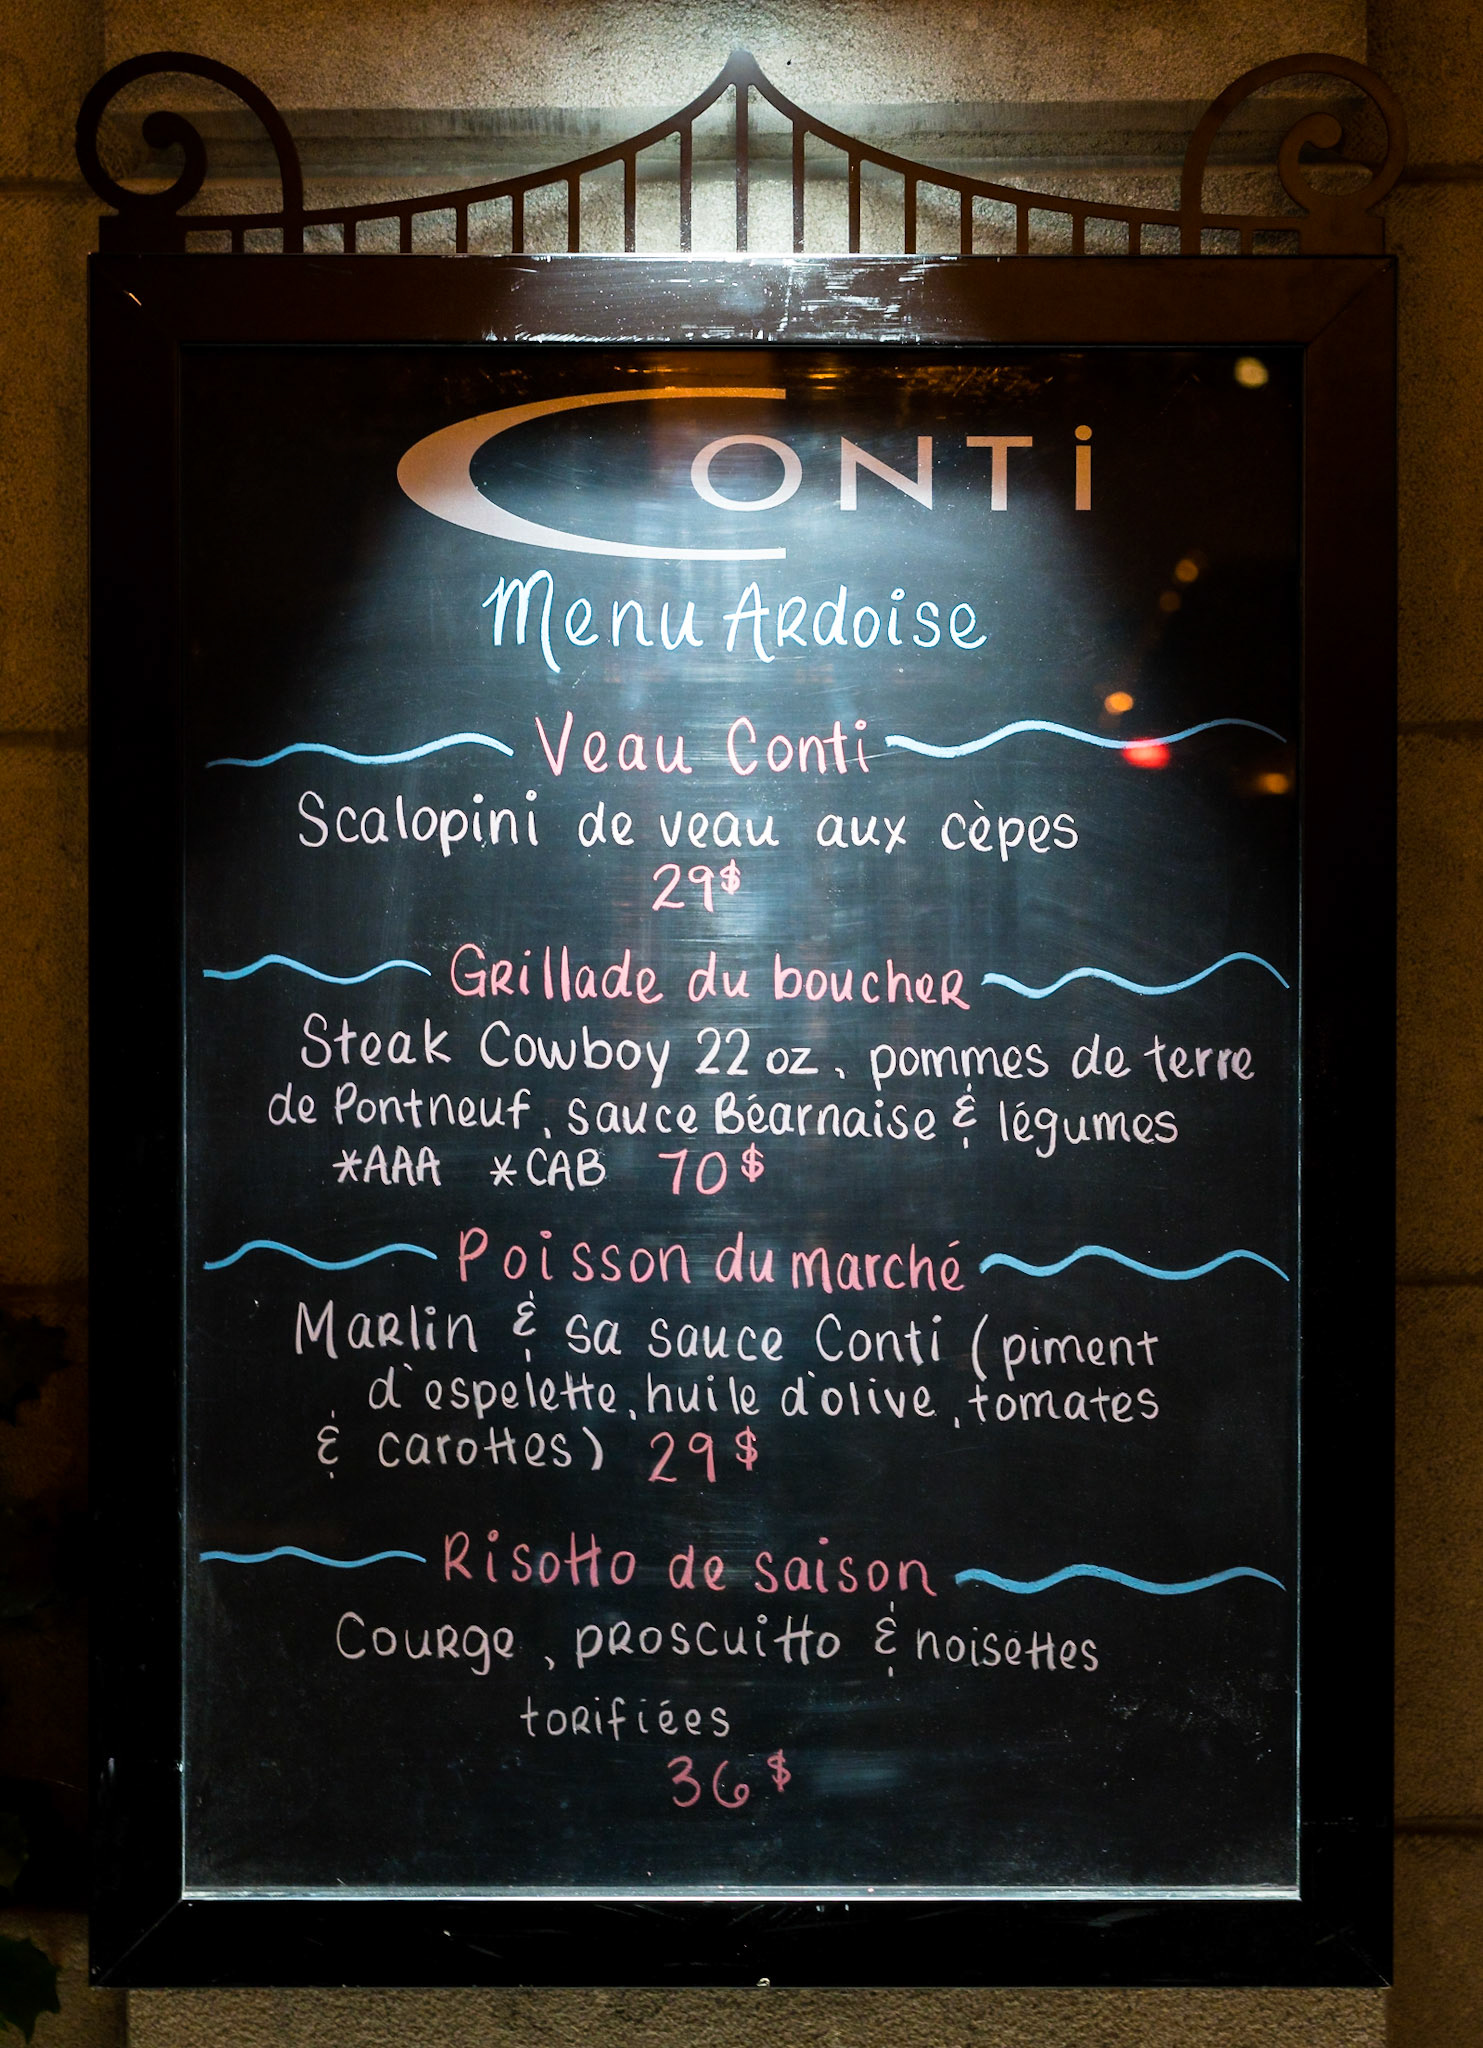 CONTi
Menu Ardoise
Veau Conti
Scalopini de veau aux cèpes
29$
Grillade du boucher
Steak Cowboy 22 oz, pommes de terre
de Pontneuf, sauce Béarnaise & légumes
*AAA *CAB 70$
Poisson du marché
Marlin & sa sauce Conti (piment
d'espelette, huile d'olive, tomates
& carottes) 29$
Risotto de saison
Courge, proscuitto & noisettes
torifiées
36$